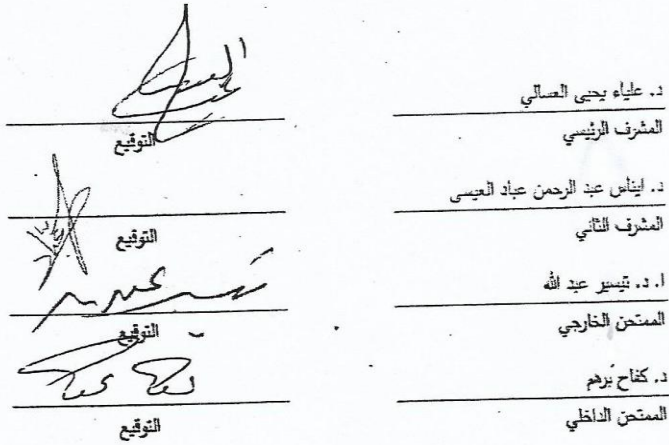 د. علياء يحيى العسالي
المشرف الرئيسي
التوقيع
د. ايناس عبد الرحمن عباد العيسى
المشرف الثاني
التوقيع
ا. د. تيسير عبد الله
الممتحن الخارجي
التوقيع
د. كفاح برهم
الممتحن الداخلي
التوقيع